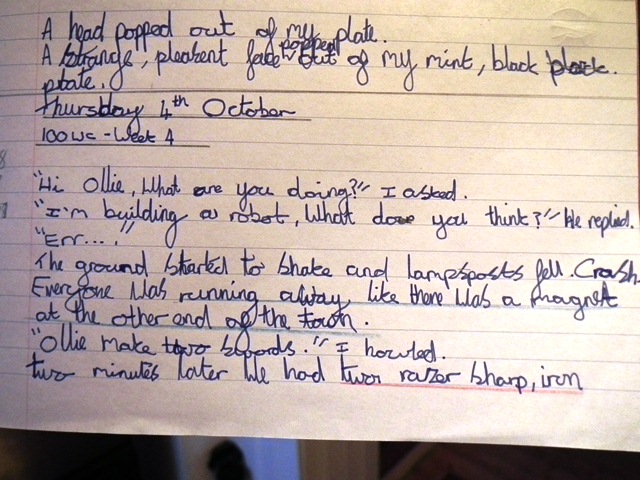 A head popped out of my plate.
A strange, pleasent face popped out of my mint, black plock.
plate.
Thursday 4th October
100 WC - Week 4
"Hi Ollie, What are you doing?" I asked.
"I'm building a robot, What do you think?" He replied.
"Err...."
The ground started to shake and lampsposts fell. Crash
Everyone was running away like there was a magnet
at the other end of the town.
"Ollie make two swords." I howled.
two minutes later We had two razer sharp, iron